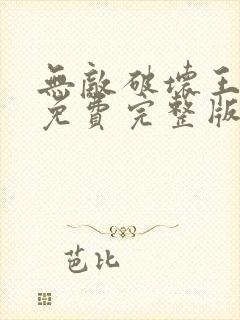 無敵破壞王
免費完整版
芭比